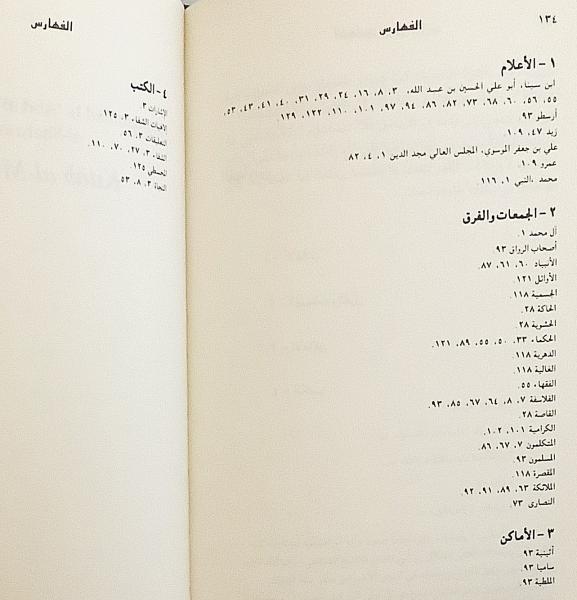 ١٣٤
الفهارس
١ - الأعلام
ابن سينا، أبو علي الحسين بن عبد الله، ٣، ٨، ١٦، ٢٤، ٢٩، ٣١، ٤٠، ٤١، ٤٣، ٥٣،
٥٥، ٥٦، ٦٠، ٦٨، ٧٣، ٨٢، ٨٦، ٩٤، ٩٧، ١٠١، ١١٠، ١٢٢، ١٢٩.
أرسطو ٩٣
زيد ٤٧، ١٠٩.
علي بن جعفر الموسوي، المجلس العالي مجد الدين ١، ٤، ٨٢
عمرو ١٠٩
محمد ،النبي ١، ١١٦.
٢ - الجمعات والفرق
آل محمد ١.
أصحاب الرواق ٩٣
الأنبياء ٦٠، ٦١، ٨٧.
الأوائل ١٢١
الجسمية ١١٨
الحاكة ٢٨.
الحشوية ٢٨
الحكماء ٣٣، ٥٠، ٥٥، ٨٩، ١٢١.
الدهرية ١١٨
الغالية ١١٨
الفقهاء ٥٥.
الفلاسفة ٧، ٨، ٦٤، ٦٧، ٨٥، ٩٣.
القاصة ٢٨
الكرامية ١٠١، ١٠٢.
المتكلمون ٧، ٦٧، ٨٦.
المسلمون ٩٣
المقصرة ١١٨
الملائكة ٦٣، ٨٩، ٩١، ٩٢.
النصارى ٧٣.
٣ - الأماكن
أثينية ٩٣
ساميا ٩٣.
الملطية ٩٣.
الفهارس
٤ - الكتب
الإشارات ٣
الشفاء ٣، ١٢٥.
التعليقات ٣، ٥٦
الشفاء ٣، ٢٧، ٧٠، ١١٠.
المجسطي ١٢٥
النجاة ٣، ٨، ٥٣